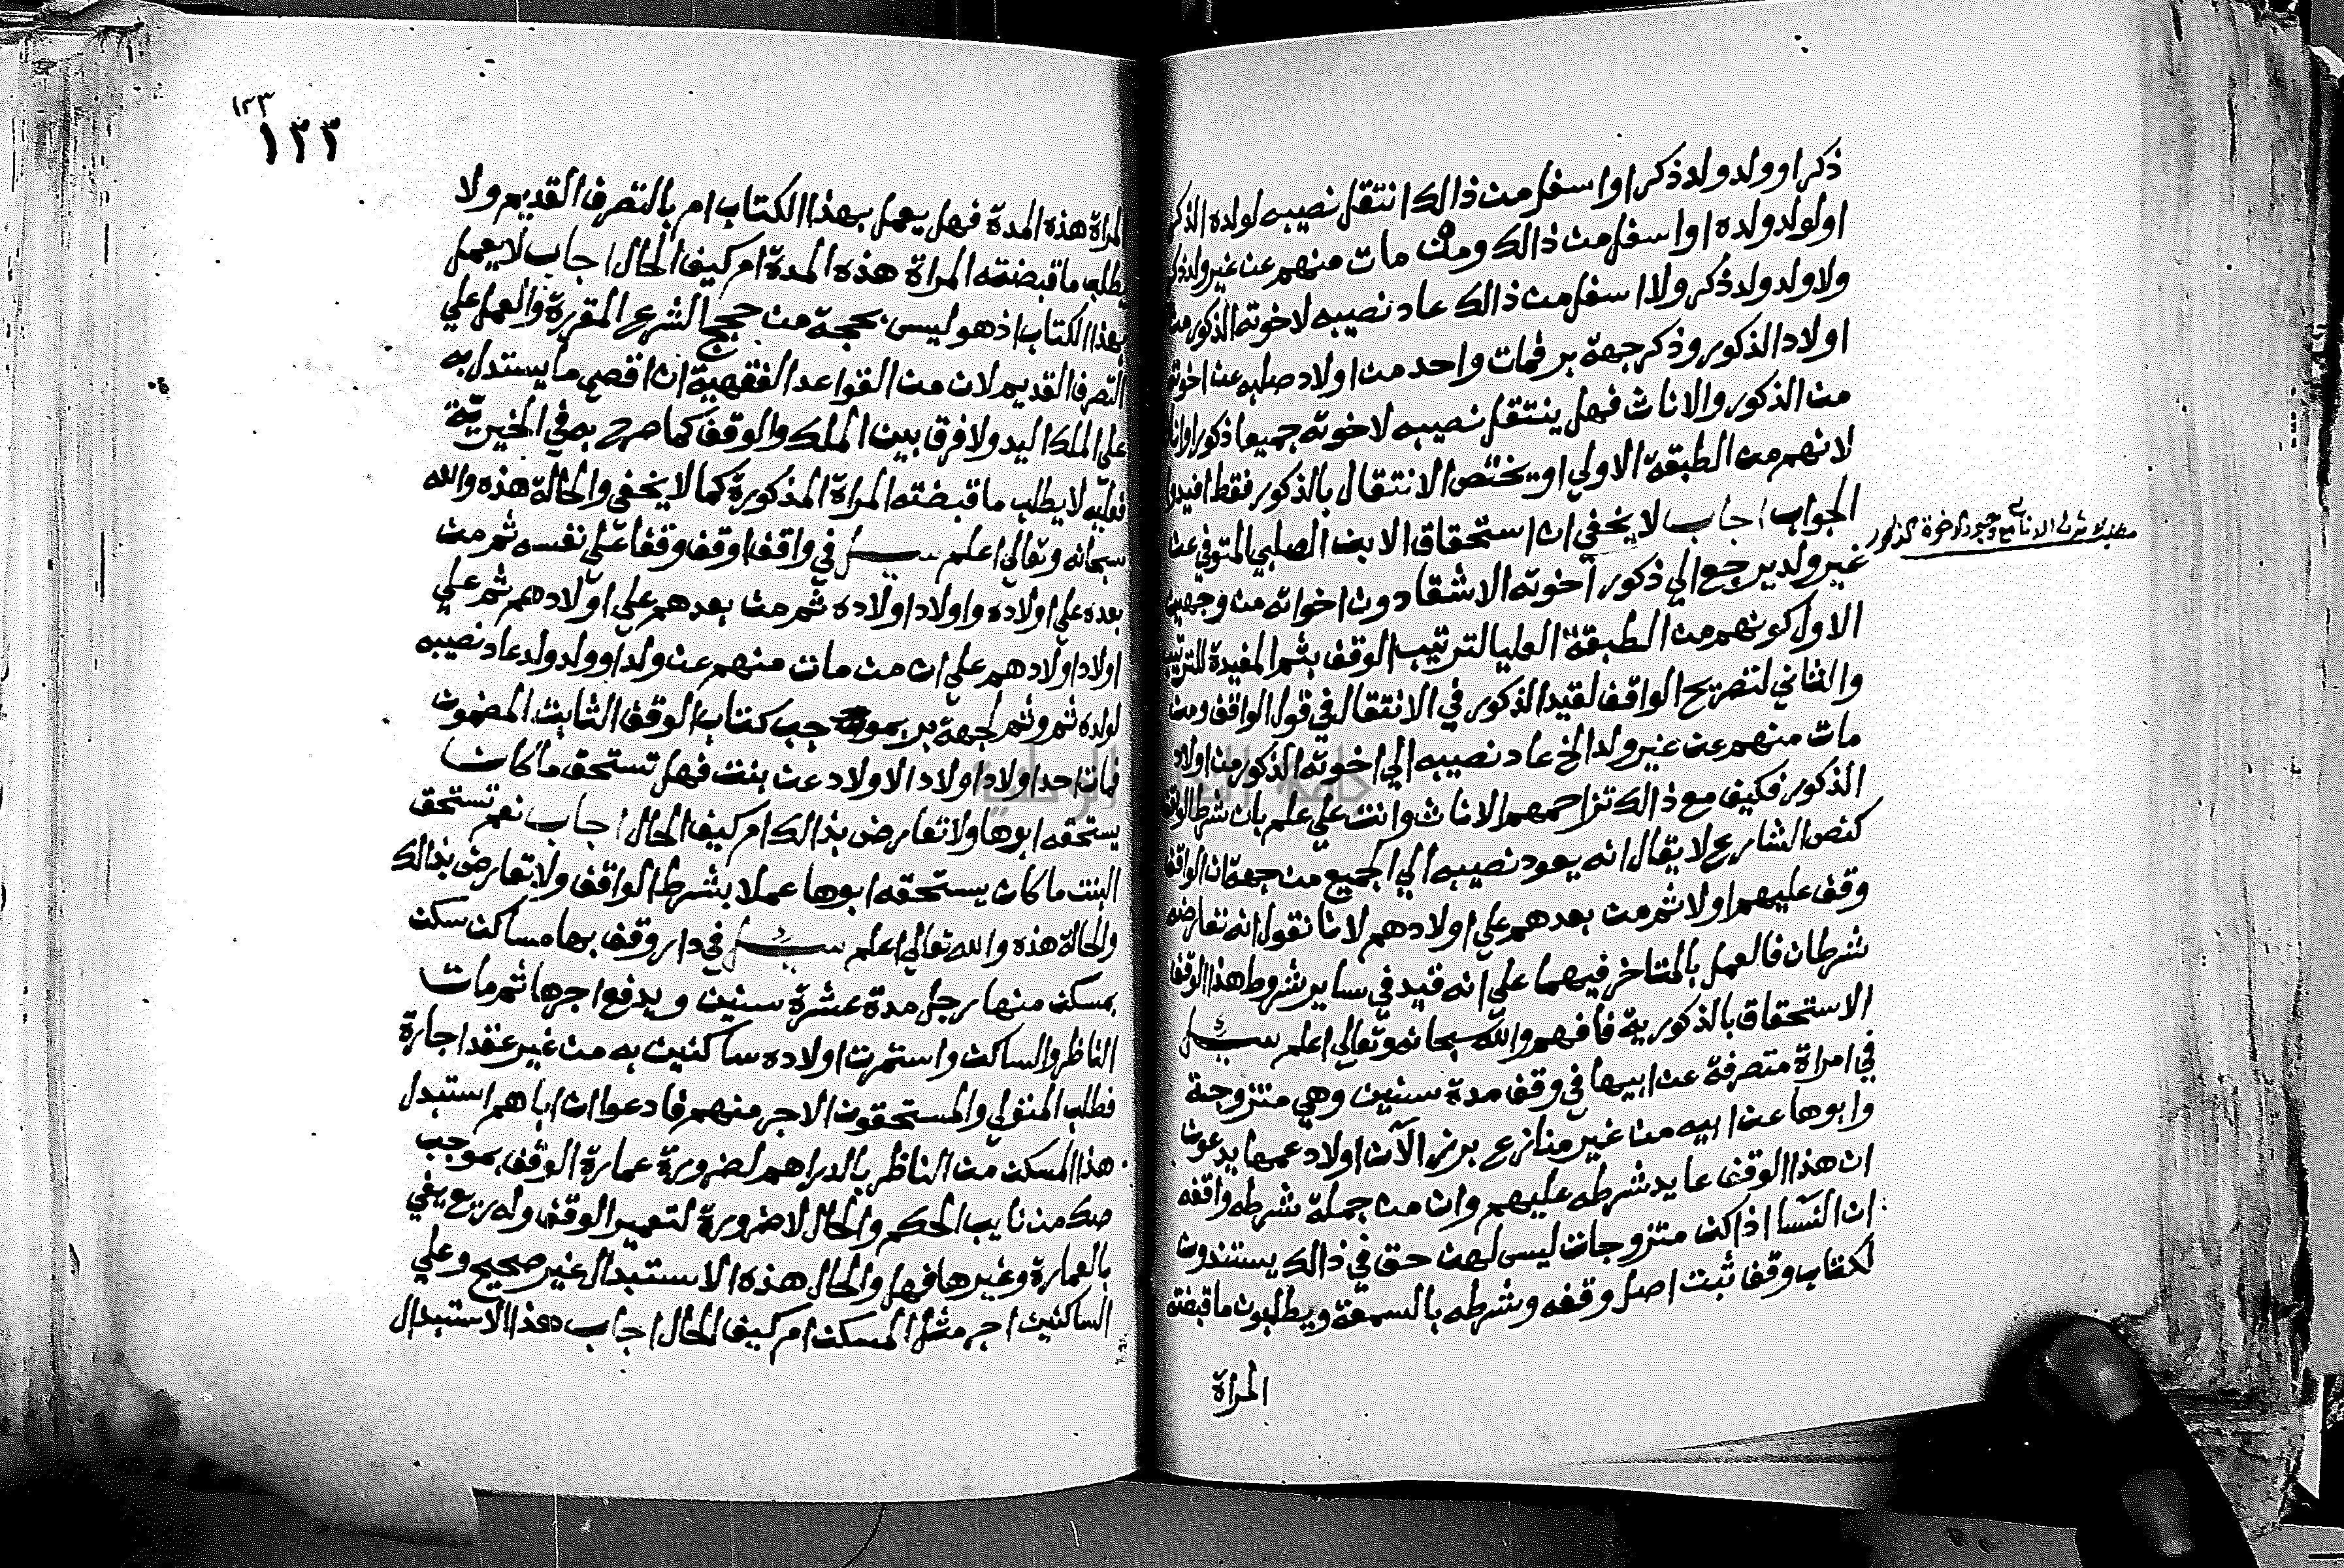 ذكرا وولد ولد ذكر او اسفل من ذالك انتقل نصيبه لولده الذكر
او لولد ولده او اسفل من ذالك ومن مات منهم عن غير ولد ذكر
ولا ولد ولد ذكر ولا اسفل من ذالك عاد نصيبه لاخوته الذكور من
اولاد الذكور وذكر جهة بر فمات واحد من اولاد صلبه عن اخوته
من الذكور والاناث فهل ينتقل نصيبه لاخوته جميعا ذكورا واناثا
لانهم من الطبقة الاولي او يختص الانتقال بالذكور فقط افيدوا
الجواب اجاب لا يخفي ان استحقاق الابن الصلبي المتوفي عن
غير ولد يرجع الي ذكور اخوته الاشقا دون اخواته من وجهين
الاول كونهم من الطبقة العليا لترتيب الوقف بثم المفيدة للترتيب
والثاني لتصريح الواقف لقيد الذكور في الانتقال في قول الواقف ومن
مات منهم عن غير ولد الخ عاد نصيبه الي اخوته الذكور من اولاد
الذكور فكيف مع ذالك تزاحمهم الاناث وانت علي علم بان شرط الواقف
كنص الشارع لا يقال انه يعود نصيبه الي الجميع من جهة ان الواقف
وقف عليهم اولا ثم من بعدهم علي اولادهم لانا نقول انه تعارضه
شرطان فالعمل بالمتاخر فيهما علي انه قيد في ساير شروط هذا الوقف
الاستحقاق بالذكورية فافهم والله سبحانه وتعالي اعلم سئل
في امراة متصرفة عن ابيها في وقف مدة سنين وهي متزوجة
وابوها عن ابيه من غير منازع برز الآن اولاد عمها يدعون
ان هذا الوقف عايد شرطه عليهم وان من جملة شرطه واقفه
ان النسا اذا كن متزوجات ليس لهن حق في ذالك يستندون
لكتاب وقف ثبت اصل وقفه وشرطه بالسمعة ويطلبون ما قبضته
المراة
الاناث مع وجود الاخوة الذكور
١٢٣
١٢٣
المراة هذه المدة فهل يعمل بهذا الكتاب ام بالتصرف القديم ولا
يطلب ما قبضته المراة هذه المدة ام كيف الحال اجاب لا يعمل
بهذا الكتاب اذ هو ليس بحجة من حجج الشرع المقررة والعمل علي
التصرف القديم لان من القواعد الفقهية ان اقصي ما يستدل به
علي الملك اليد ولا فرق بين الملك والوقف كما صرح به في الخيرية
فعليه لا يطلب ما قبضته المراة المذكورة كما لا يخفي والحالة هذه والله
سبحانه وتعالي اعلم سئل في واقف اوقف وقفا علي نفسه ثم من
بعده علي اولاده واولاد اولاده ثم من بعدهم علي اولادهم ثم علي
اولاد اولادهم علي ان من مات منهم عن ولد او ولد ولد عاد نصيبه
لولده ثم وثم لجهة بر بموجب كتاب الوقف الثابت المضمون
فمات احد اولاد اولاد الاولاد عن بنت فهل تستحق ما كان
يستحقه ابوها ولا تعارض بذالك ام كيف الحال اجاب نعم تستحق
البنت ما كان يستحقه ابوها عملا بشرط الواقف ولا تعارض بذالك
والحالة هذه والله تعالي اعلم سئل في دار وقف بها مساكن سكن
بمسكن منها رجل مدة عشرة سنين ويدفع اجرها ثم مات
الناظر والساكن واستمرت اولاده ساكنين به من غير عقد اجارة
فطلب المتولي والمستحقون الاجر منهم فادعوا ان اباهم استبدل
هذا المسكن من الناظر بالدراهم لضرورة عمارة الوقف بموجب
صك من نايب الحكم والحال لا ضرورة لتعمير الوقف وله ريع يفي
بالعمارة وغيرها فهل والحال هذه الاستبدال غير صحيح وعلي
الساكنين اجر مثل المسكن ام كيف الحال اجاب هذا الاستبدال